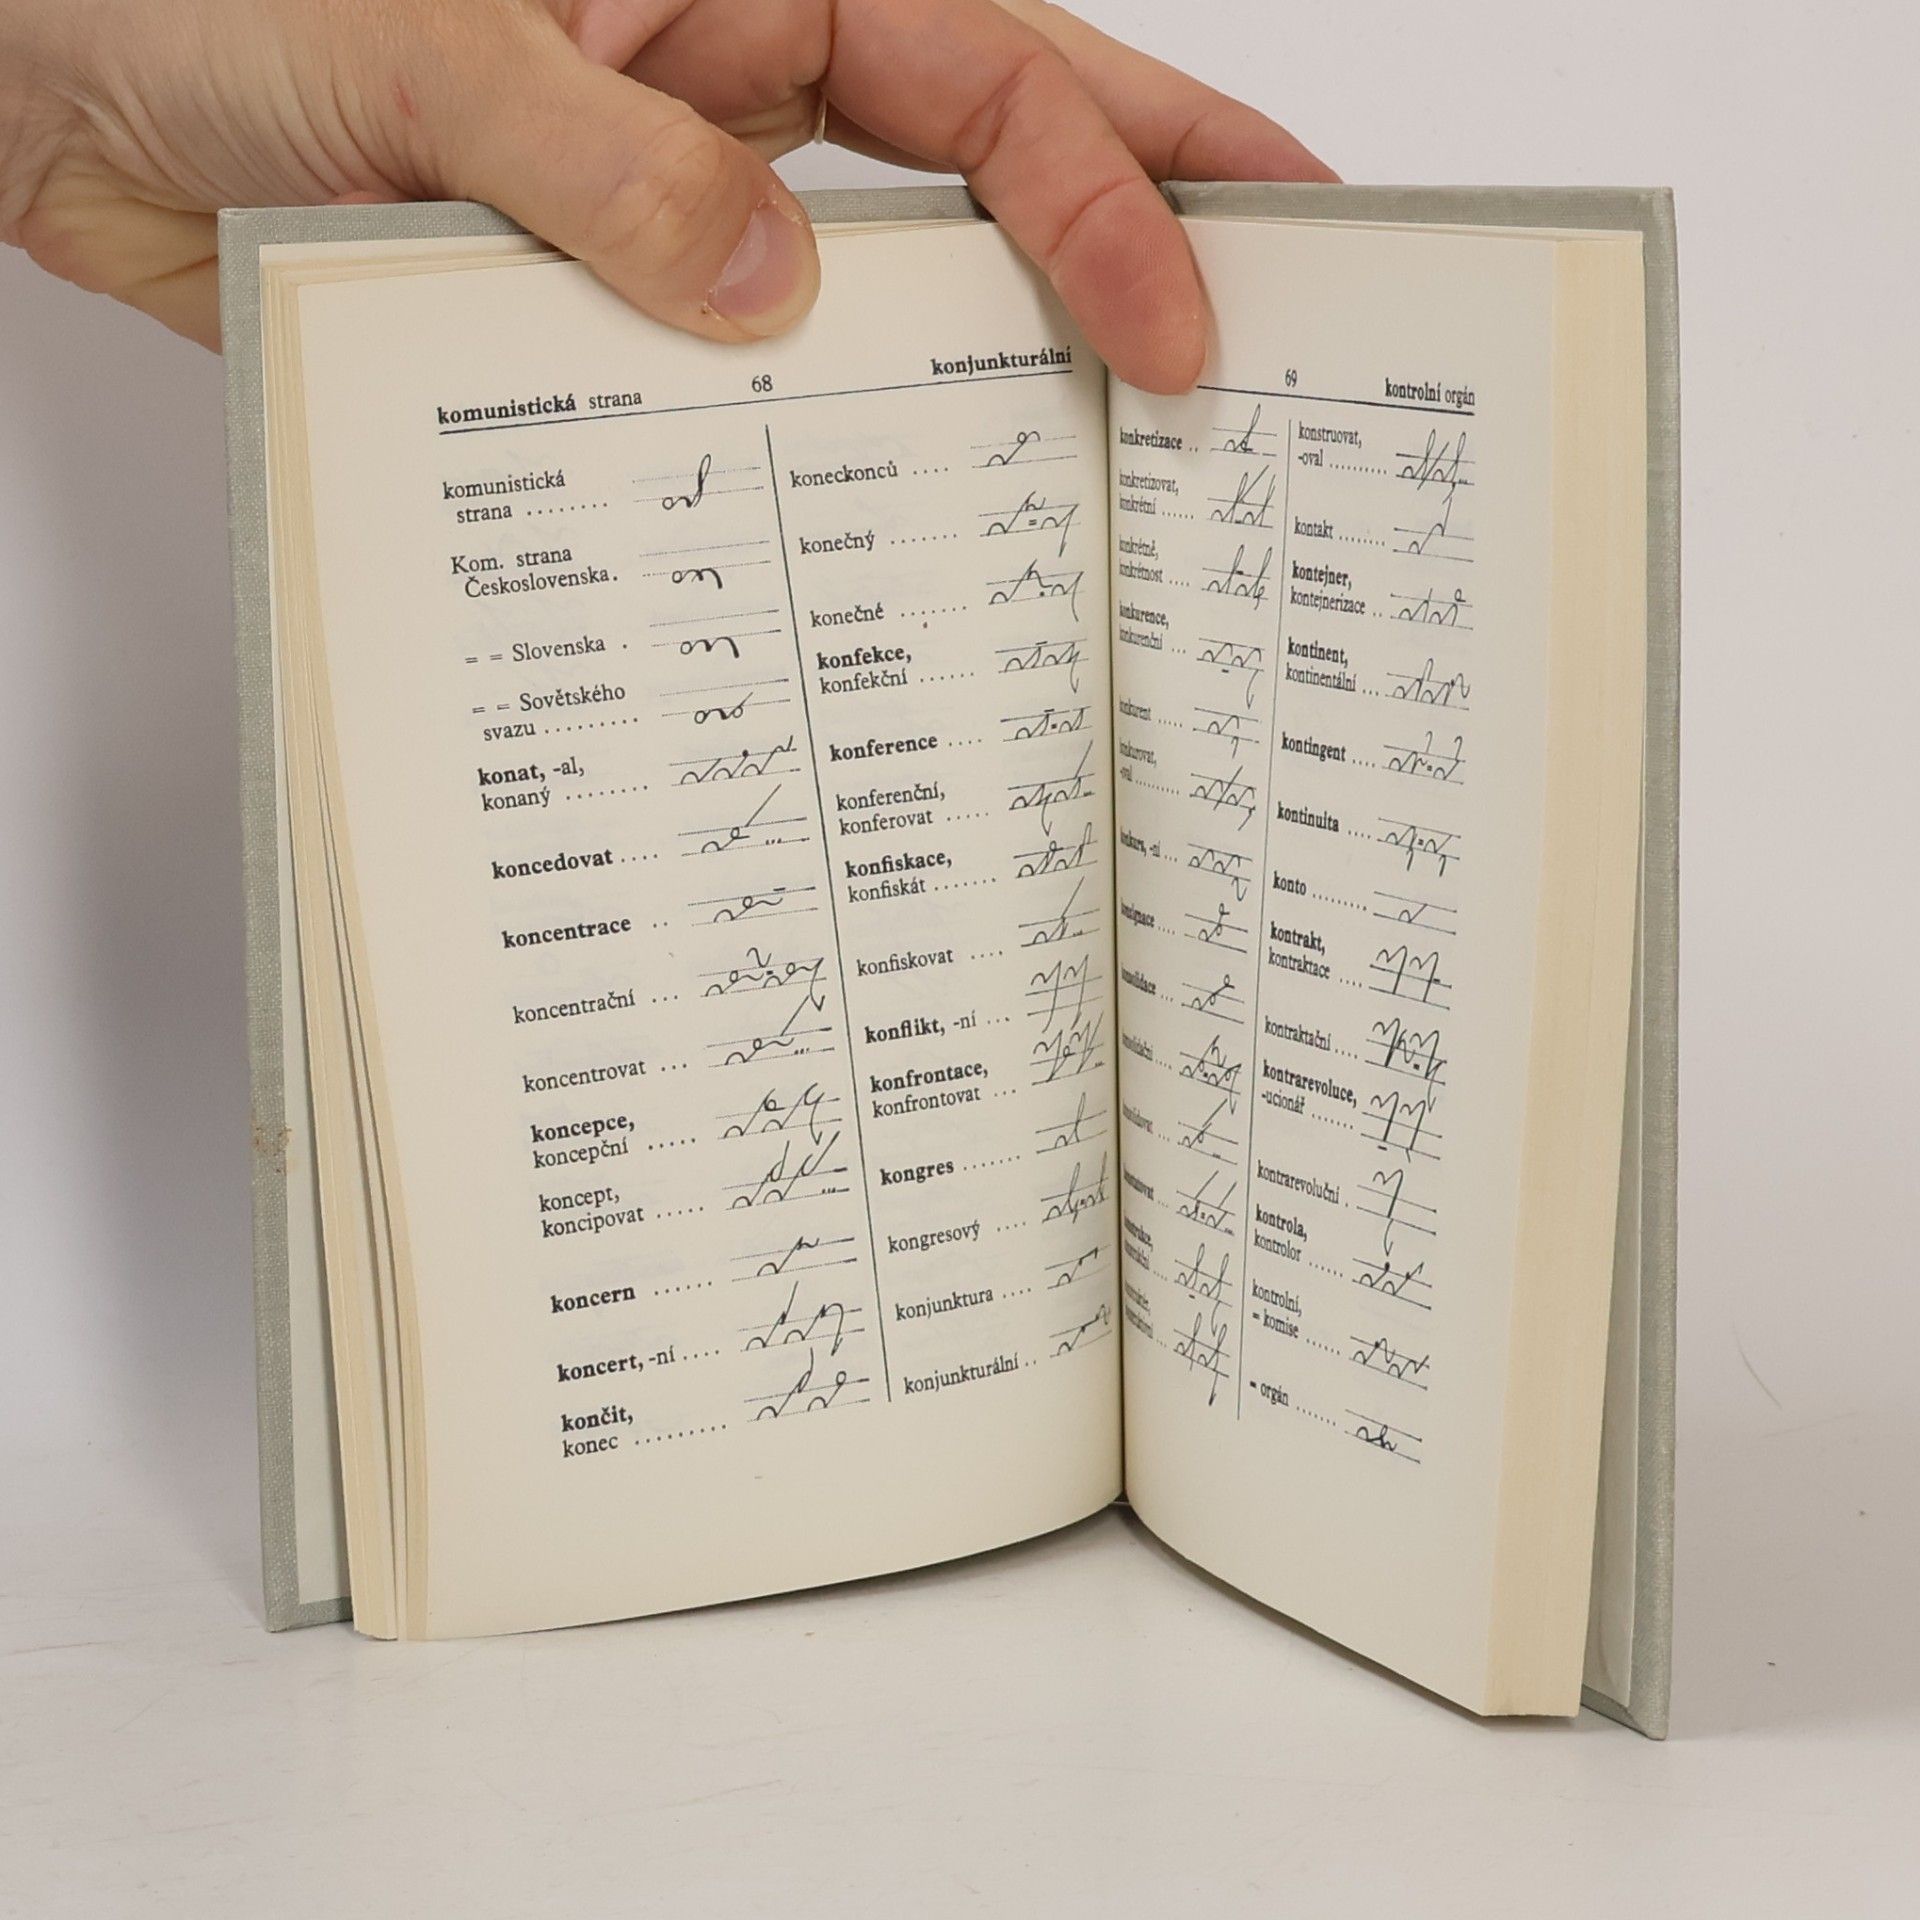 komunistická strana 68 konjunkturální
komunistická
strana ........
Kom. strana
Československa.
= = Slovenska .
= = Sovětského
svazu .........
konat, -al,
konaný ........
koncedovat ....
koncentrace ..
koncentrační ...
koncentrovat ...
koncepce,
koncepční .....
koncept,
koncipovat .....
koncern ......
koncert, -ní ....
končit,
konec .........
koneckonců ....
konečný .......
konečné .......
konfekce,
konfekční ......
konference ....
konferenční,
konferovat .....
konfiskace,
konfiskát .......
konfiskovat ....
konflikt, -ní ...
konfrontace,
konfrontovat ...
kongres .......
kongresový ....
konjunktura ....
konjunkturální ..
69 kontrolní orgán
konkretizace ..
konkretizovat,
konkrétní ......
konkrétně,
konkrétnost ....
konkurence,
konkurenční ...
konkurent .....
konkurovat,
-oval ..........
konkurs, -ní ...
konsignace ...
konsolidace ...
konsolidační ...
konsolidovat ...
konstatovat ...
konstrukce,
konstruovat,
-oval ..........
kontakt ........
kontejner,
kontejnerizace ..
kontinent,
kontinentální ...
kontingent ....
kontinuita ....
konto .........
kontrakt,
kontraktace ....
kontraktační ....
kontrarevoluce,
-ucionář .......
kontrarevoluční .
kontrola,
kontrolor ......
kontrolní,
= komise ......
= orgán .......